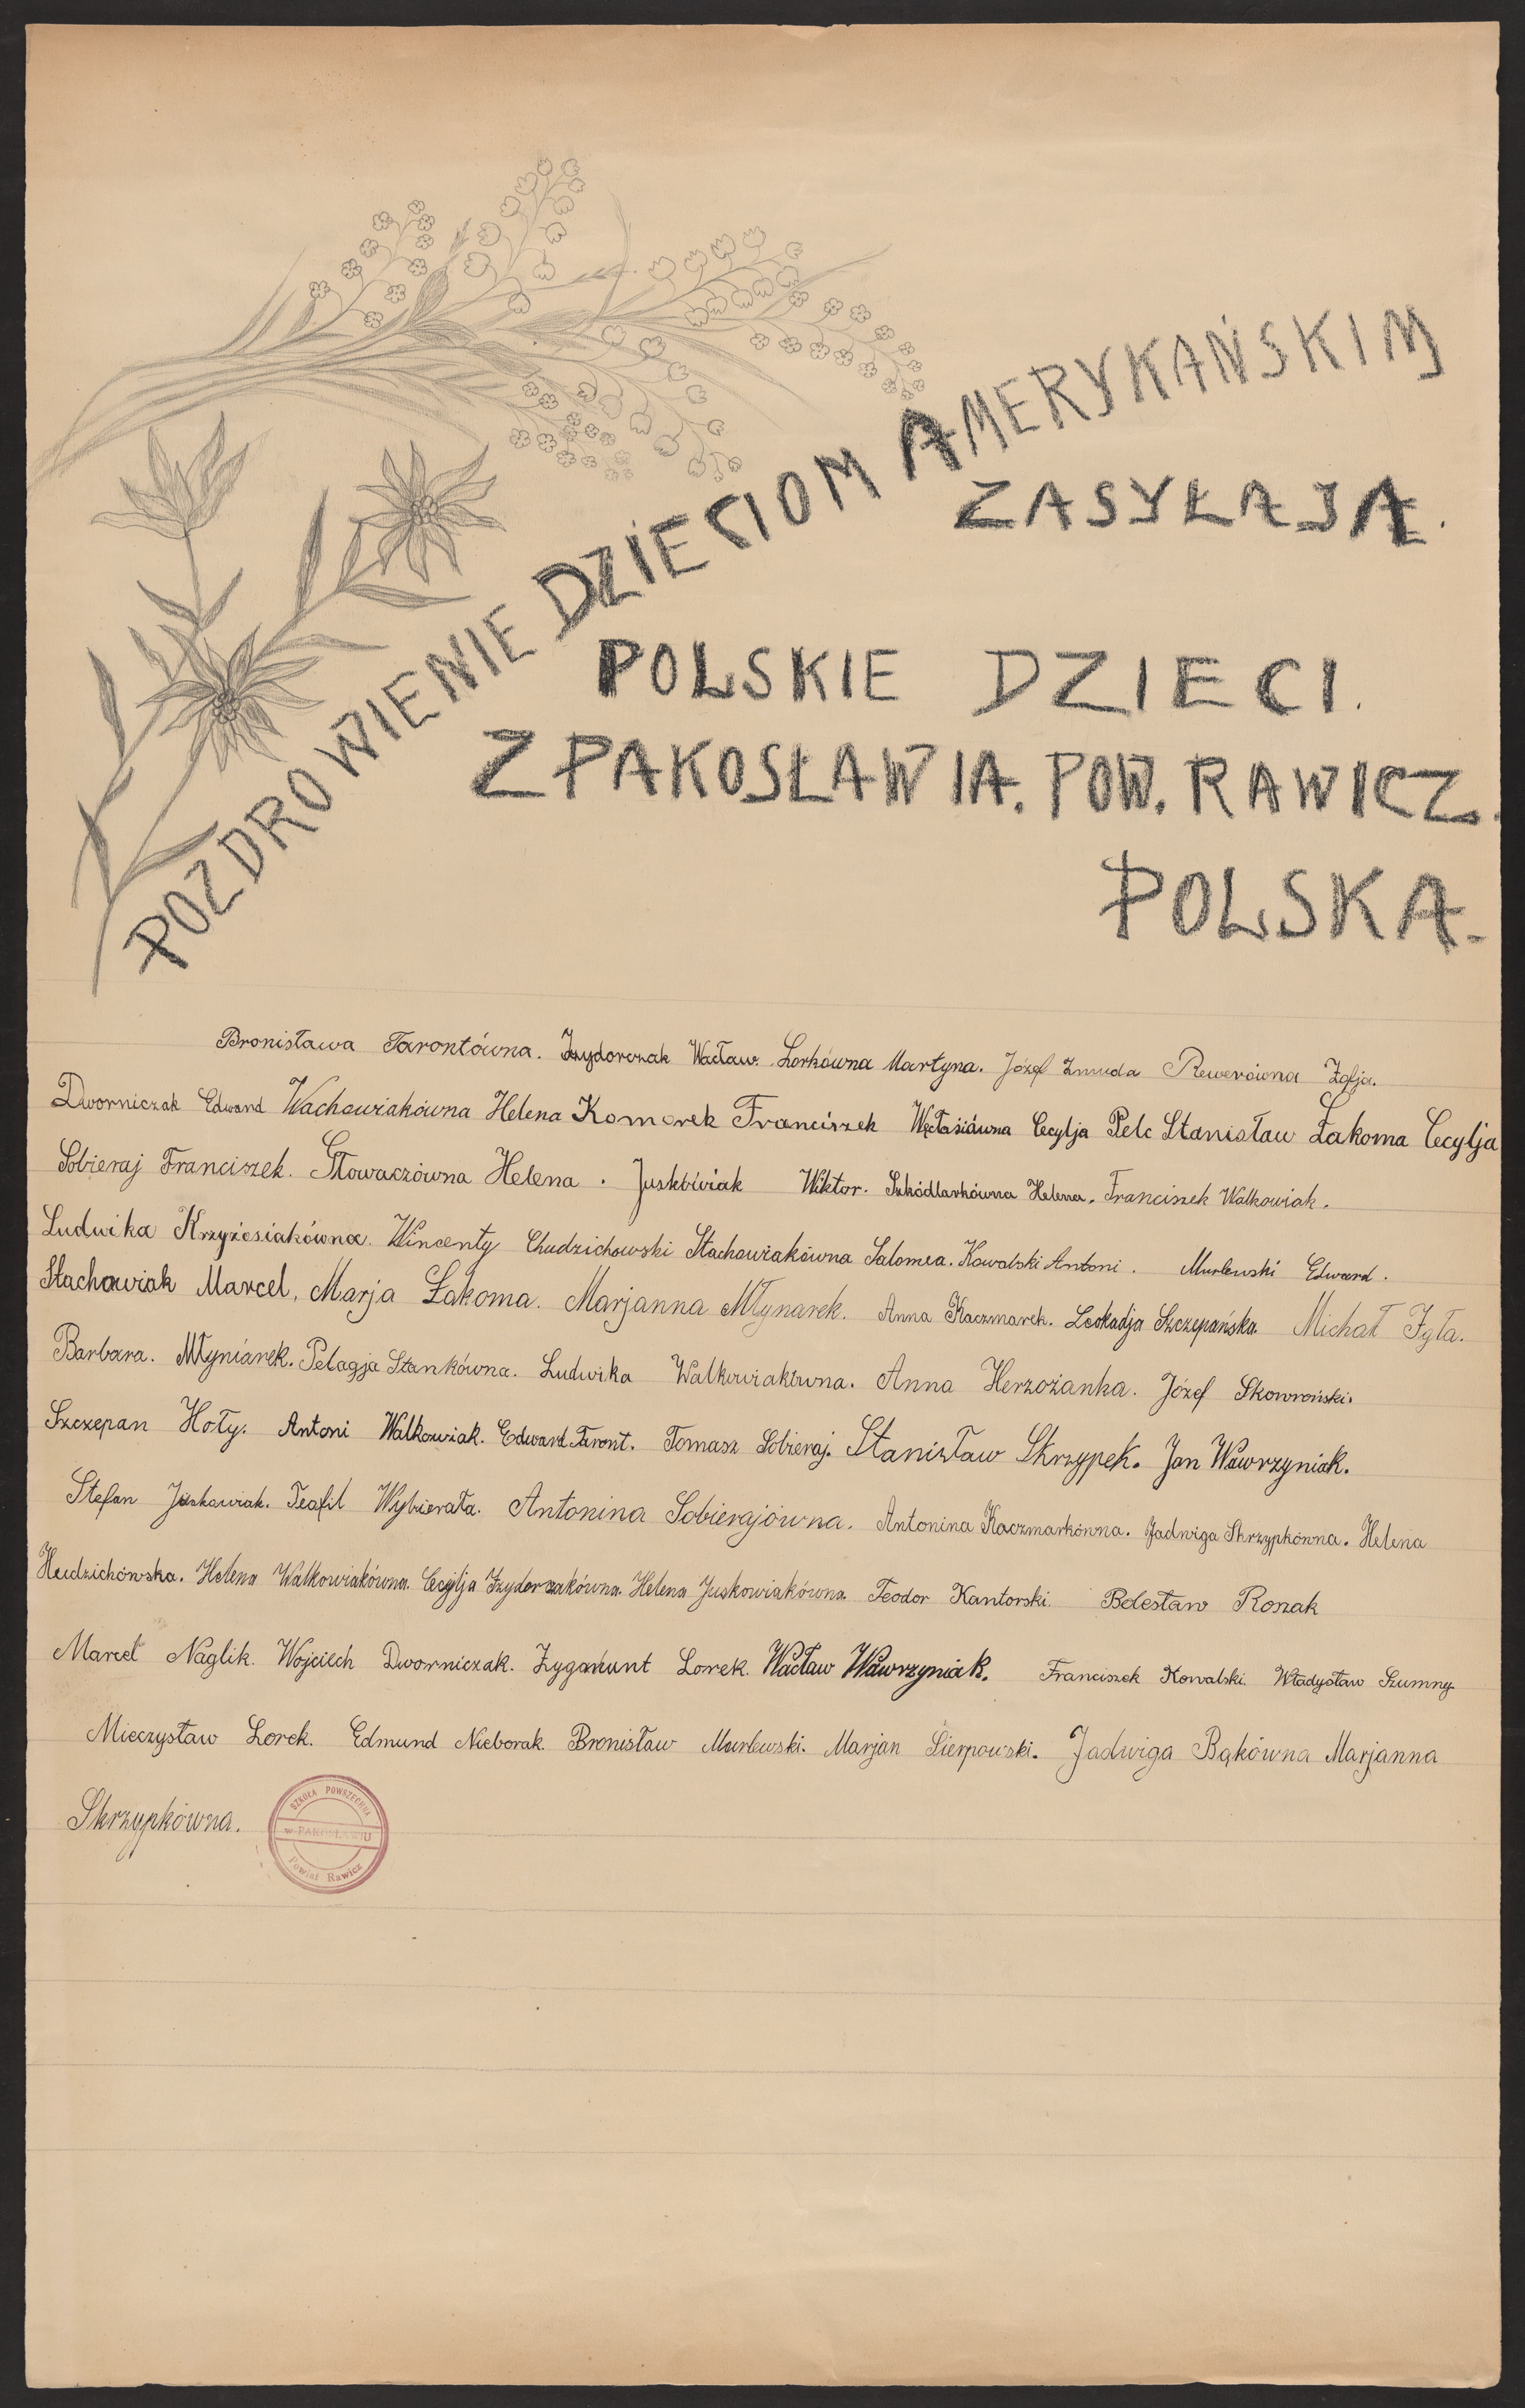 POZDROWIENIE DZIECIOM AMERYKAŃSKIM
ZASYŁAJĄ.
POLSKIE DZIECI.
Z PAKOSŁAWIA. POW. RAWICZ.
POLSKA.
Bronisława Tarontówna. Izydorczak Wacław. Lorkówna Martyna. Józef Żmuda Rewerówna Zofja.
Dworniczak Edward Wachowiakówna Helena Komorek Franciszek Węcłasiówna Cecylja Pelc Stanisław Łakoma Cecylja
Sobieraj Franciszek. Głowaczówna Helena. Juskowiak Wiktor. Szkódlarkówna Helena. Franciszek Walkowiak.
Ludwika Krzyżosiakówna. Wincenty Chudzichowski Stachowiakówna Salomea. Kowalski Antoni. Murlewski Edward.
Stachowiak Marcel, Marja Łakoma. Marjanna Młynarek. Anna Kaczmarek. Leokadja Szczepańska. Michał Igła.
Barbara. Młyniarek. Pelagja Stankówna. Ludwika Walkowiakówna. Anna Herzożanka. Józef Skowroński.
Szczepan Hoły. Antoni Walkowiak. Edward Taront. Tomasz Sobieraj. Stanisław Skrzypek. Jan Wawrzyniak.
Stefan Juskowiak. Teofil Wybierała. Antonina Sobierajówna. Antonina Kaczmarkówna. Jadwiga Skrzypkówna. Helena
Hudzichówska. Helena Walkowiakówna. Cecylja Izydorzakówna. Helena Juskowiakówna. Teodor Kantorski. Bolesław Roszak
Marcel Naglik. Wojciech Dworniczak. Zygmunt Lorek. Wacław Wawrzyniak. Franciszek Kowalski. Władysław Szumny.
Mieczysław Lorek. Edmund Nieborak. Bronisław Murlewski. Marjan Sierpowski. Jadwiga Bąkówna Marjanna
Skrzypkówna.
SZKOŁA POWSZECHNA
w PAKOSŁAWIU
Powiat Rawicz